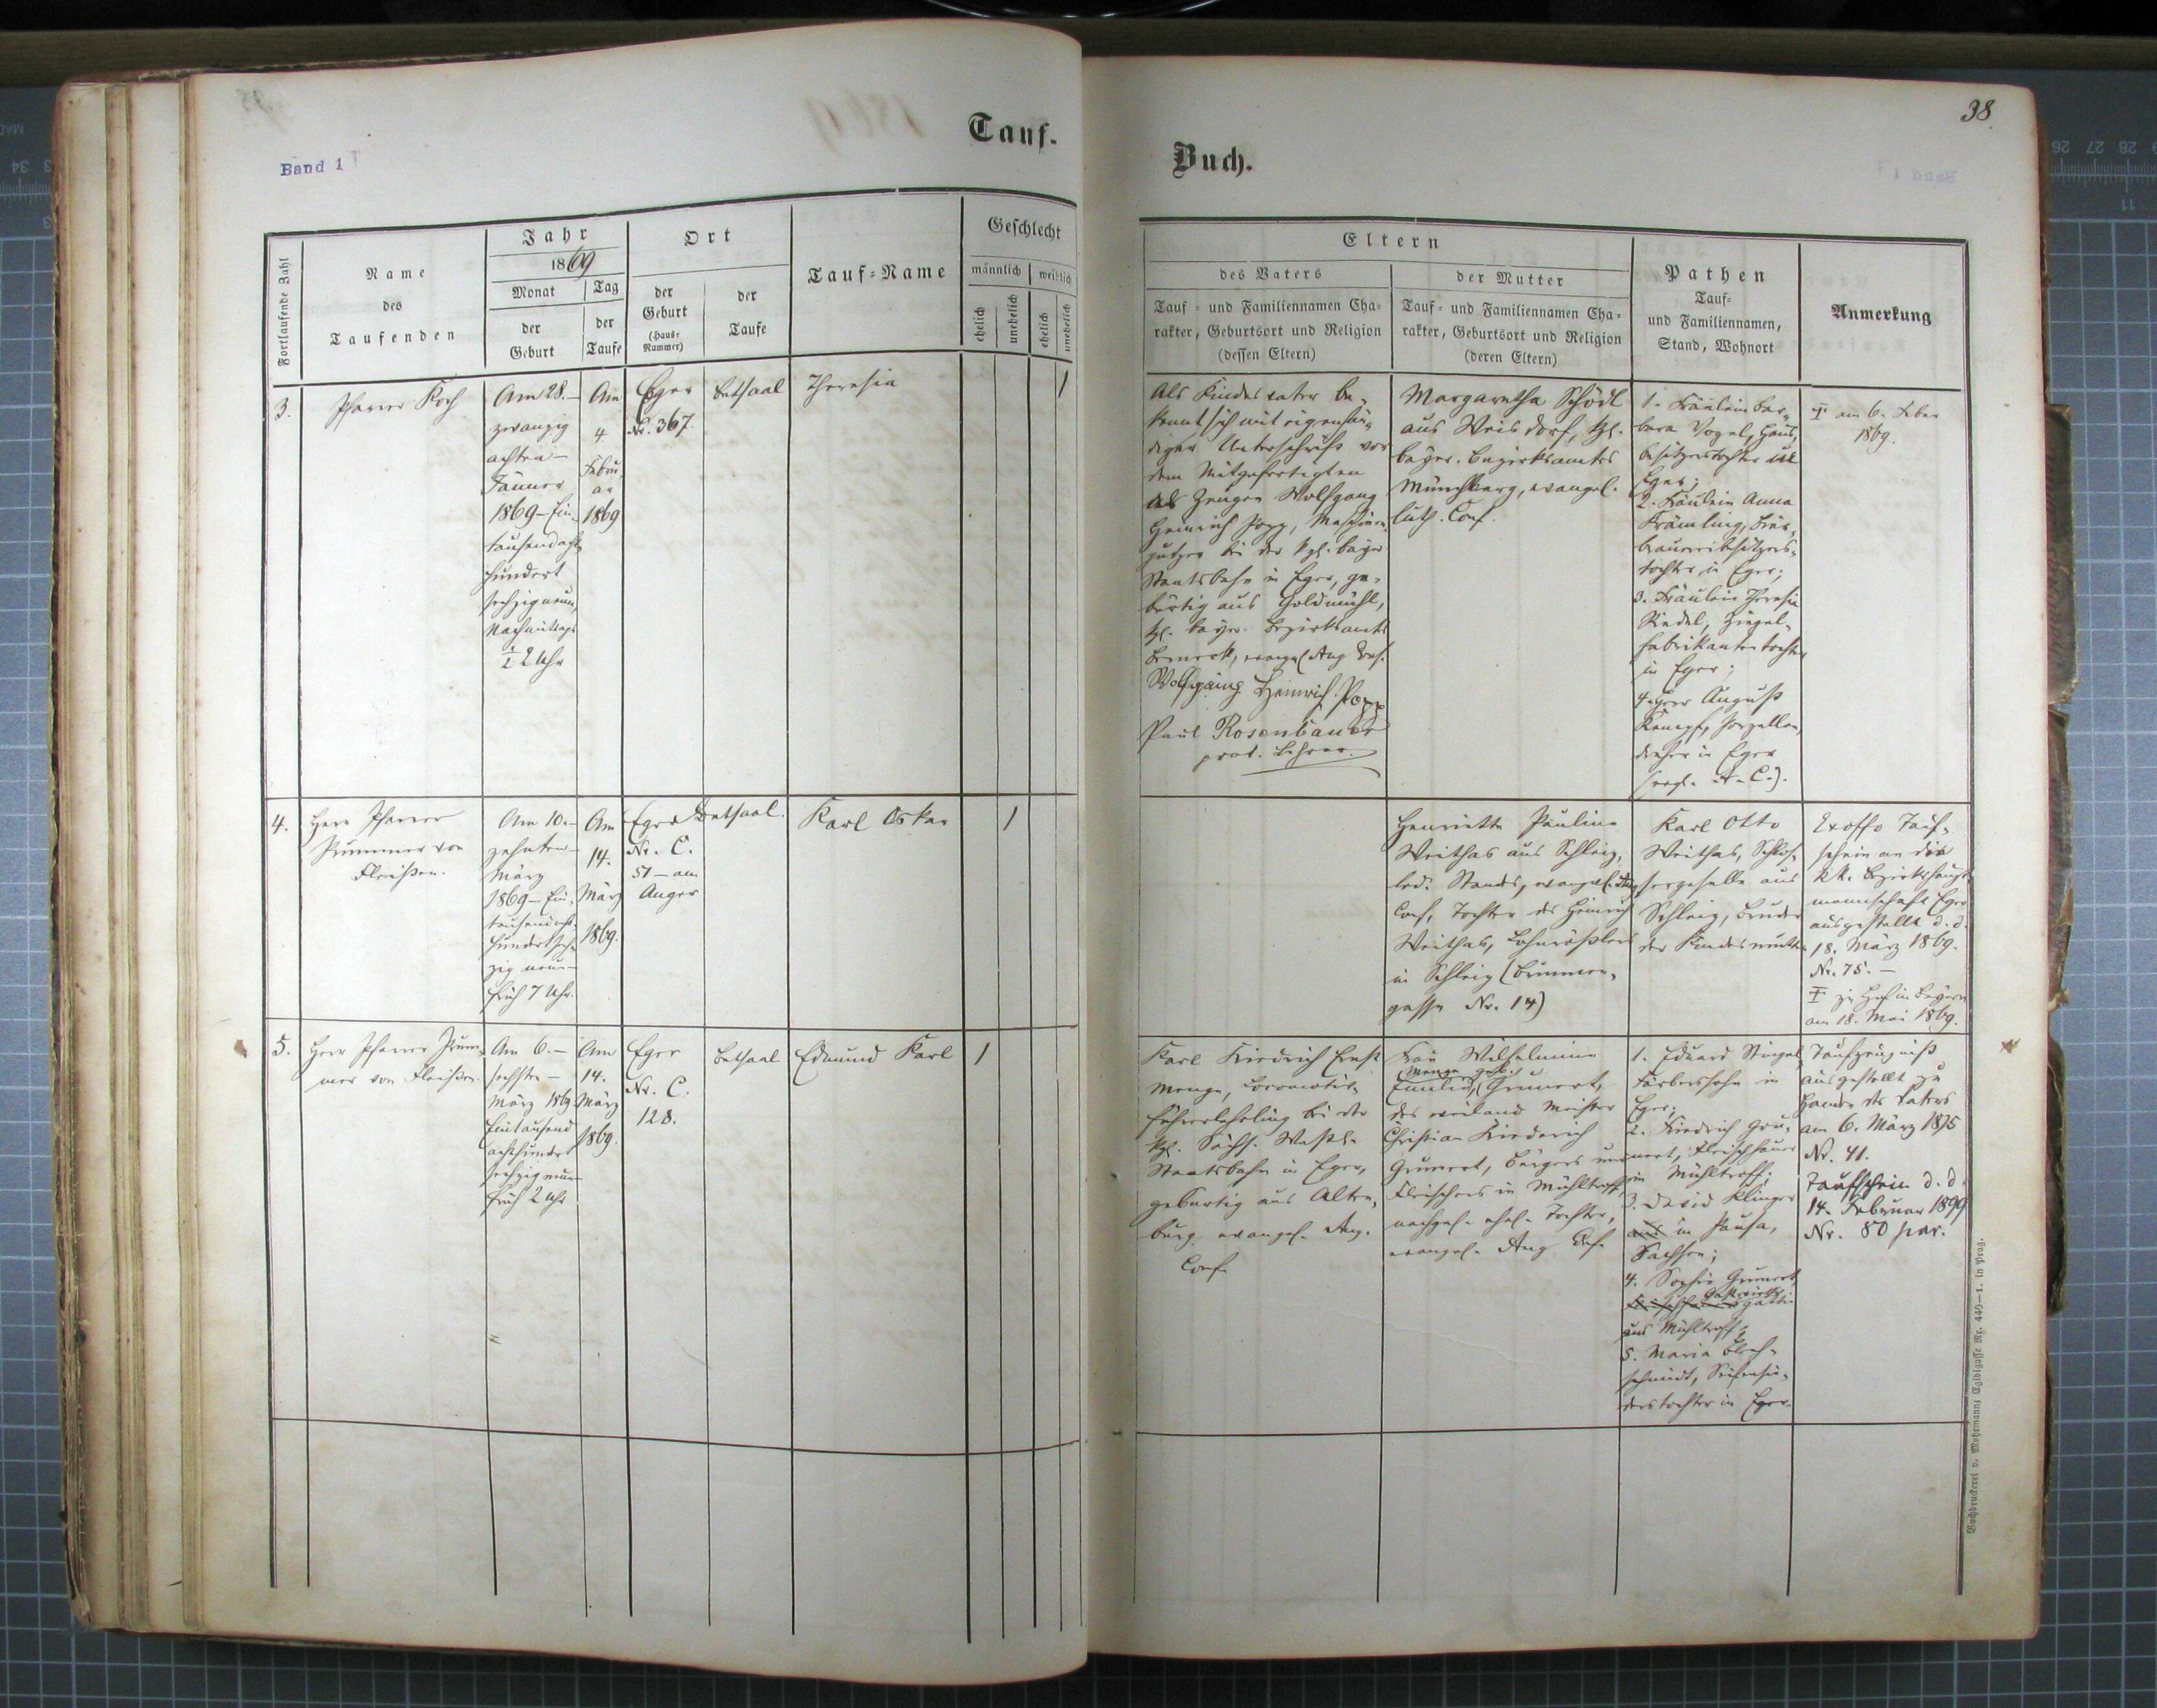 38
Band 1
Tauf-
Buch.
Fortlaufende Zahl
Name
des
Taufenden
Jahr
1869
Monat
der
Geburt
Tag
der
Taufe
Ort
der
Geburt
(Haus-
Nummer)
der
Taufe
Tauf-Name
Geschlecht
männlich
weiblich
ehelich
unehelich
ehelich
unehelich
Eltern
des Vaters
Tauf- und Familiennamen Cha-
rakter, Geburtsort und Religion
(dessen Eltern)
der Mutter
Tauf- und Familiennamen Cha-
rakter, Geburtsort und Religion
(deren Eltern)
Pathen
Tauf-
und Familiennamen,
Stand, Wohnort
Anmerkung
3.
Pfarrer Koch
Am 28.-
zwanzig
achten-
Jänner
1869-Ein-
tausendacht-
hundert
sechzigneun,
Nachmittags
½ 2 Uhr
Am
4
Febru-
ar
1869
Eger
Nr. 367.
Betsaal
Theresia
1
Als Kindesvater be-
kennt sich mit eigenhän-
diger Unterschrift vor
dem Mitgefertigten
als Zeugen Wolfgang
Heinrich Popp, Maschinen-
putzer bei der kgl. bayr.
Staatsbahn in Eger, ge-
bürtig aus Goldmühl,
kgl. bayr. Bezirksamts
Berneck, evangel. Aug. Conf.
Wolfgang Heinrich Popp
Paul Rosenbauer
prot. Lehrer.
Margaretha Schödl
aus Weisdorf, kgl.
bayer. Bezirksamtes
Münchberg, evangel.
luth. Conf.
1. Fräulein Bar-
bara Vogel, Haus-
besitzerstochter in
Eger;
2. Fräulein Anna
Främling, Bier-
brauereibesitzers-
tochter in Eger;
3. Fräulein Theresia
Riedel, Ziegel-
fabrikantentochter
in Eger;
4. Herr August
Kempf, Porzellan-
dreher in Eger
(evgl. A. C.).
† am 6. Feber
1869.
4.
Herr Pfarrer
Prummer von
Fleißen.
Am 10.-
zehnten-
März
1869-Ein-
tausendacht-
hundertsech-
zig neun-
früh 7 Uhr.
Am
14.
März
1869.
Eger
Nr. C.
51 - am
Anger
Betsaal.
Karl Oskar
1
Henriette Pauline
Weithas aus Schleiz,
led. Standes, evangel. Aug.
Conf., Tochter des Heinrich
Weithas, Lohnrößlers
in Schleiz (Brunnen-
gasse Nr. 14)
Karl Otto
Weithas, Schlos-
sergeselle aus
Schleiz, Bruder
der Kindesmutter
Exoffo Tauf-
schein an die
k.k. Bezirkshaupt-
mannschaft Eger
ausgestellt d. d.
18. März 1869.
Nr. 75.-
† zu Hof in Bayern
am 18. Mai 1869.
5.
Herr Pfarrer Prum-
mer von Fleißen.
Am 6.-
sechsten-
März 1869
Eintausend
achthundert
sechzigneun-
früh 2 Uhr
Am
14.
März
1869.
Eger
Nr. C.
128.
Betsaal
Edmund Karl
1
Karl Friedrich Ernst
Menge, Locomotiv-
führerlehrling bei der
kgl. Sächs. Westl.
Staatsbahn in Eger,
gebürtig aus Alten-
burg, evangel. Aug.
Conf.
Frau Wilhelmine
Menge geb.
Emilie, Grunert,
des weiland Meister
Christian Friederich
Grunert, Bürgers und
Fleischers in Mühltroff,
nachgel. ehel. Tochter,
evangel. Aug. Conf.
1. Eduard Stingel,
Färberssohn in
Eger;
2. Friedrich Gru-
nert, Fleischhauer
in Mühltroff;
3. David Klinger
aus in Pausa,
Sachsen;
4. Sophie Grunert,
Gastwirths
gattin
aus Mühltroff;
5. Maria Blech-
schmidt, Seifensie-
derstochter in Eger.
Taufzeugniß
ausgestellt zu
Handen des Vaters
am 6. März 1875
Nr. 41.
Taufschein d. d.
14. Februar 1899
Nr. 80 par.
Buchdruckerei v. Mohrmann; Egidigasse Nr. 449—1. in Prag.